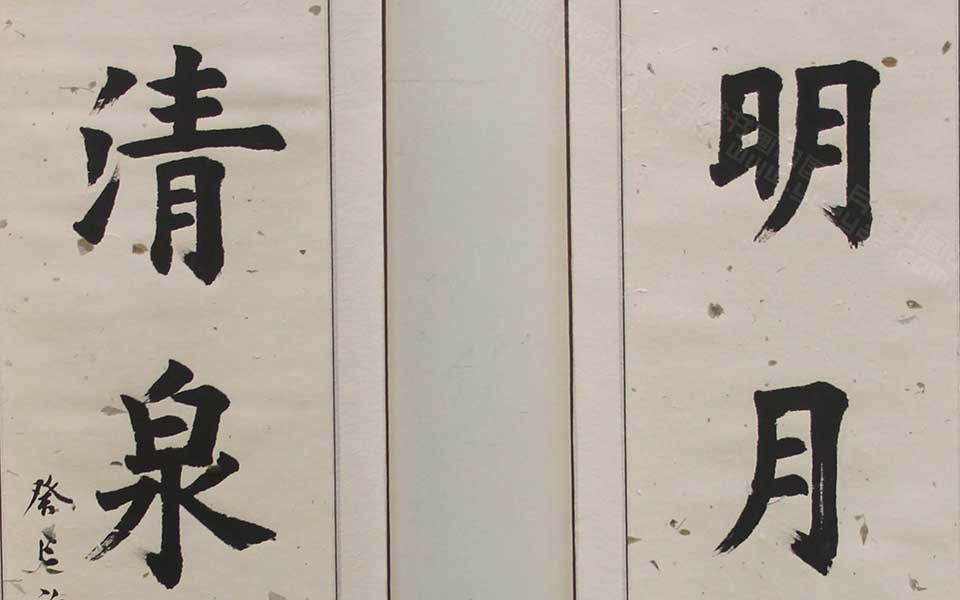 明月
清泉
癸巳